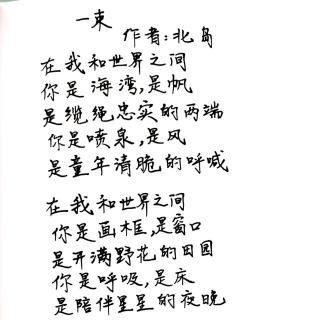 一束
作者:北岛
在我和世界之间
你是海湾,是帆
是缆绳忠实的两端
你是喷泉,是风
是童年清脆的呼喊
在我和世界之间
你是画框,是窗口
是开满野花的田园
你是呼吸,是床
是陪伴星星的夜晚